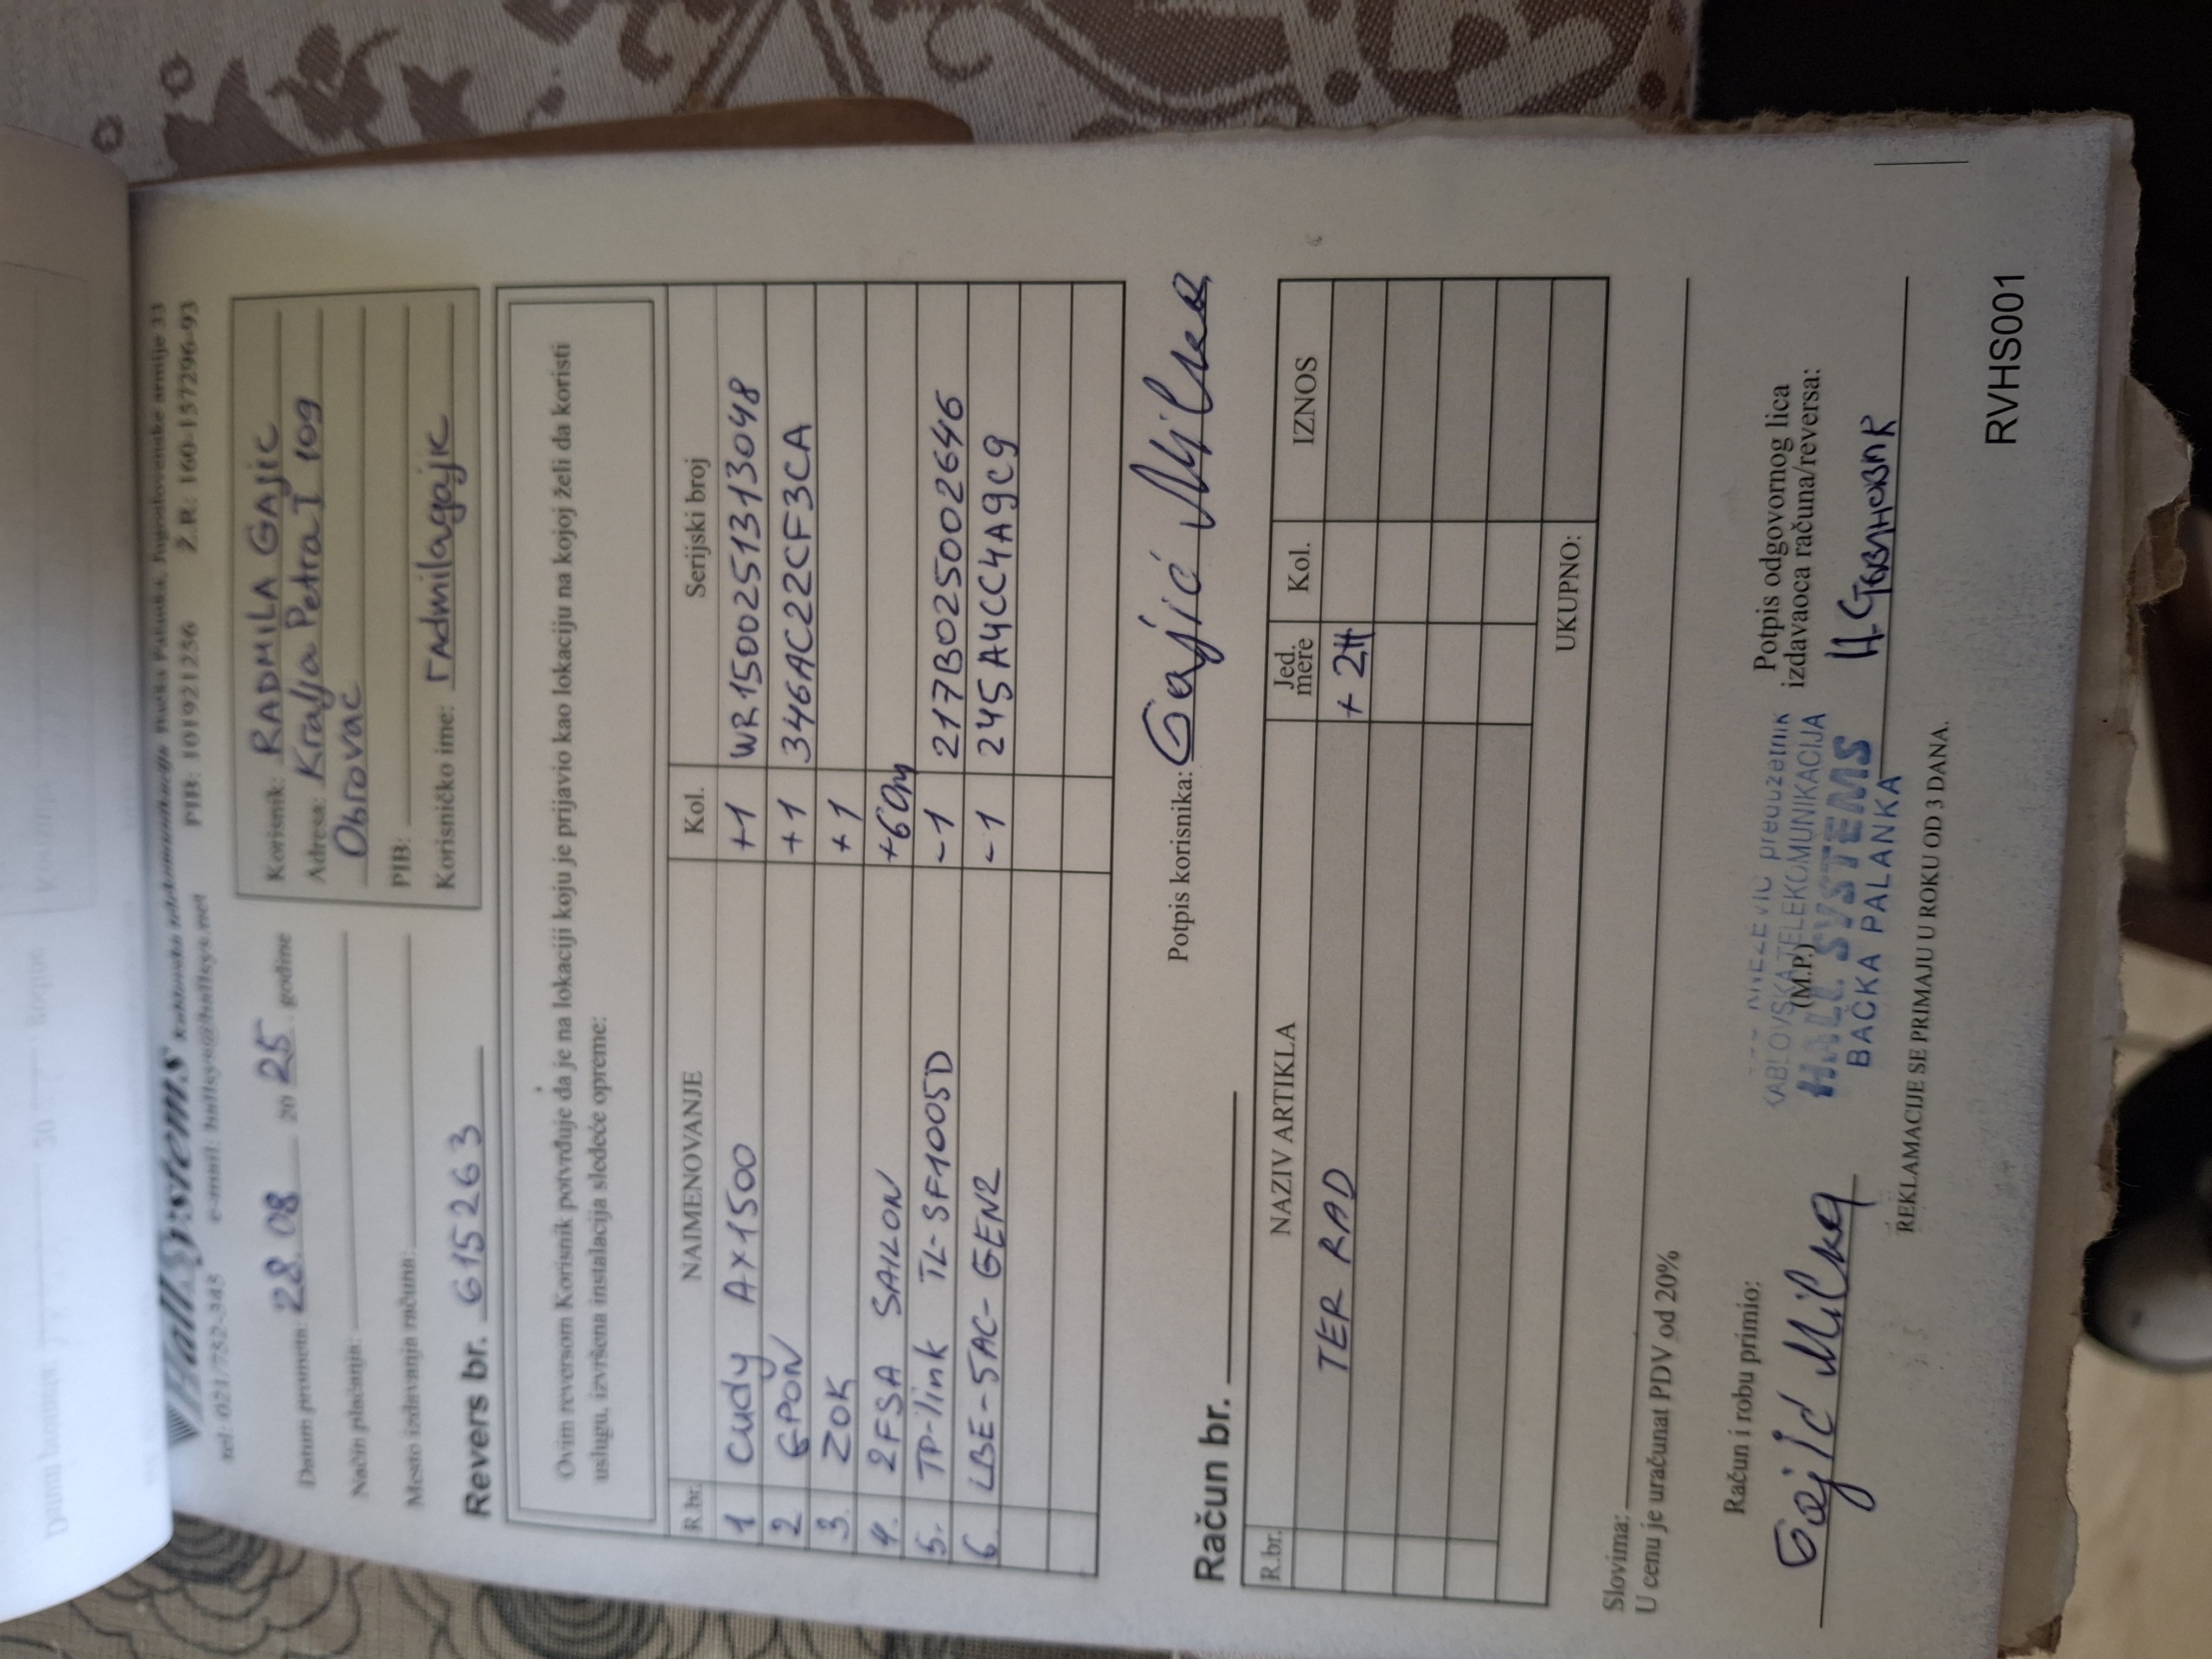 HallSystems
tel: 021/752-345 e-mail: hallsys@hallsys.net PIB: 101921236 Ž.R: 160-157296-93
Datum prometa: 28.08 20 25 godine
Način plaćanja:
Mesto izdavanja računa:
Revers br. 615263
Korisnik: RADMILA GAJIC
Adresa: Kralja Petra I 109
Obrovac
PIB:
Korisničko ime: radmilagajic
Ovim reversom Korisnik potvrđuje da je na lokaciji koju je prijavio kao lokaciju na kojoj želi da koristi
uslugu, izvršena instalacija sledeće opreme:
R.br. NAIMENOVANJE Kol. Serijski broj
1 Cudy AX1500 +1 WR1500251313048
2 GPON +1 346AC22CF3CA
3. ZOK +1
4. 2FSA SAILON +60m
5. TP-link TL-SF1005D -1 217B0250002646
6. LBE-5AC-GEN2 -1 245A4CC4A9C9
Potpis korisnika: Gajić Milka
Račun br.
R.br. NAZIV ARTIKLA Jed. mere Kol. IZNOS
TER RAD + 2H
UKUPNO:
Slovima:
U cenu je uračunat PDV od 20%
Račun i robu primio:
Gajić Milka
preduzetnik
KABLOVSKA TELEKOMUNIKACIJA
(M.P.)
HALL SYSTEMS
BAČKA PALANKA
Potpis odgovornog lica
izdavaoca računa/reversa:
REKLAMACIJE SE PRIMAJU U ROKU OD 3 DANA.
RVHS001